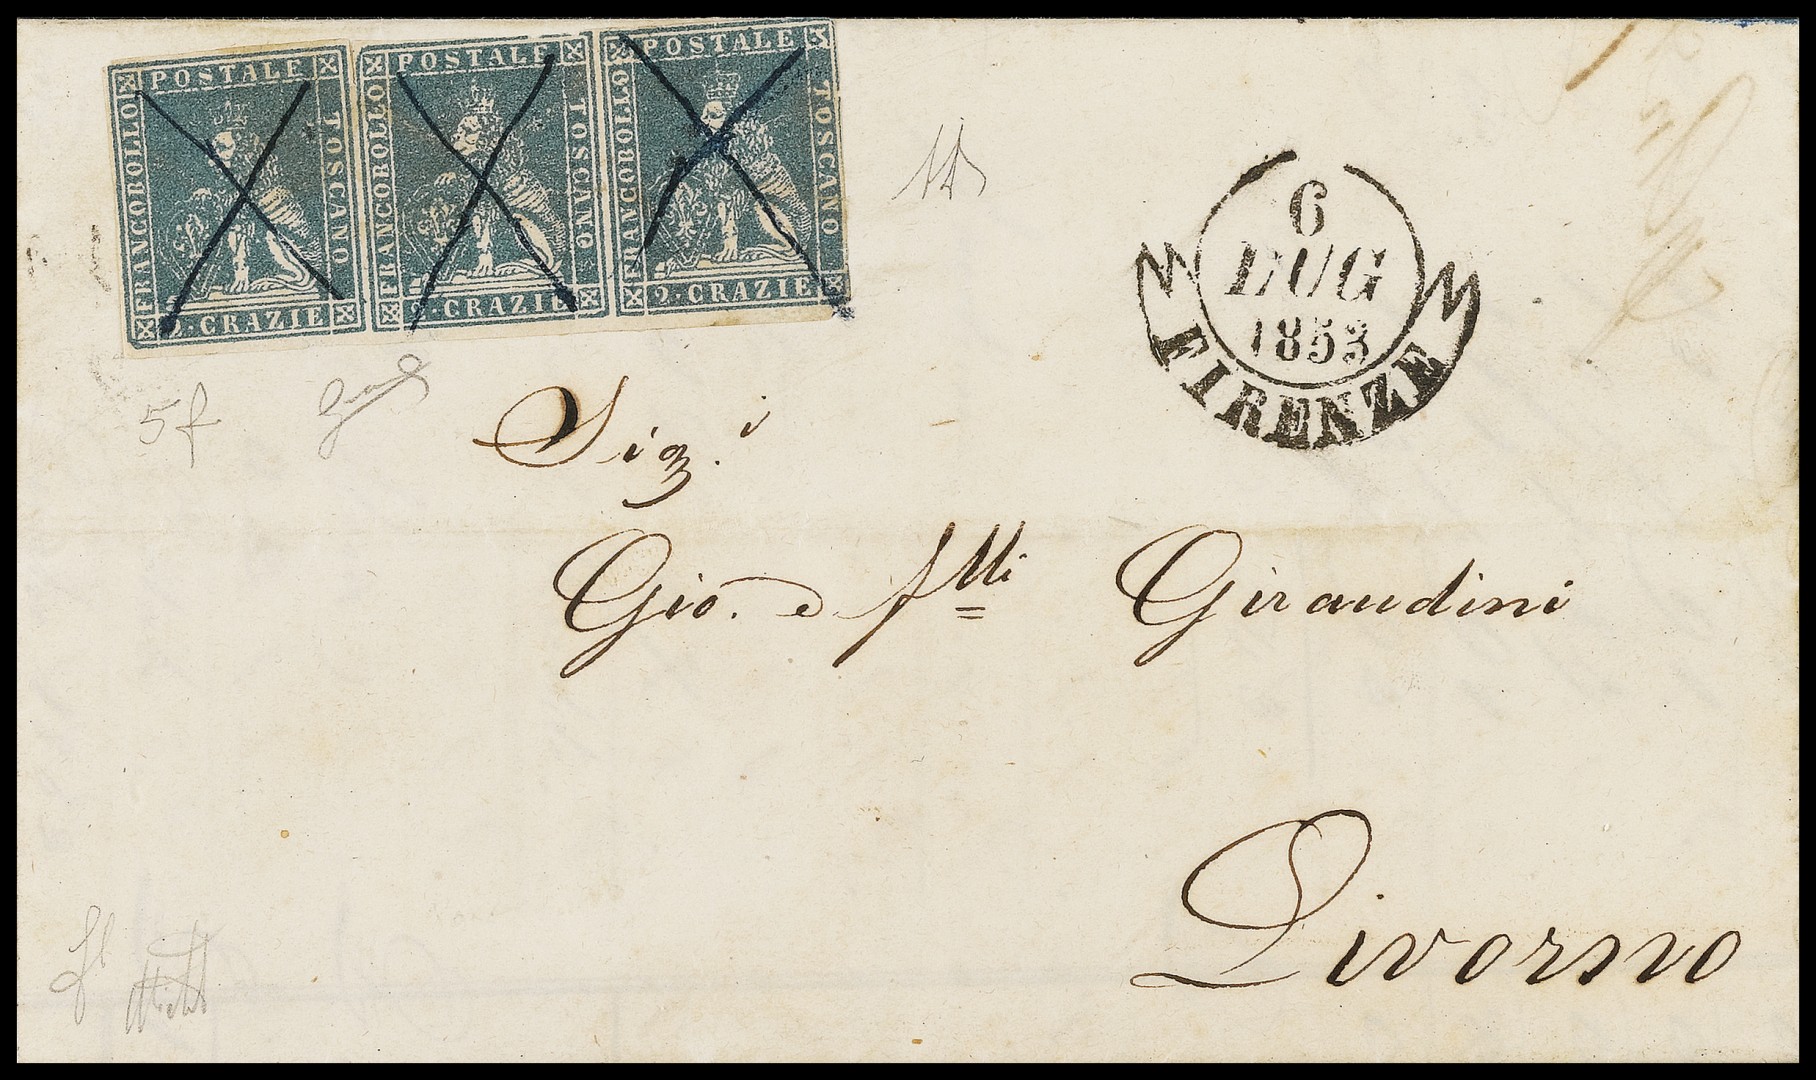 POSTALE
FRANCOBOLLO
TOSCANO
2·CRAZIE
POSTALE
FRANCOBOLLO
TOSCANO
2·CRAZIE
POSTALE
FRANCOBOLLO
TOSCANO
2·CRAZIE
6
LUG
1853
FIRENZE
5f
Sig.i
Gio. e flli Giraudini
Livorno